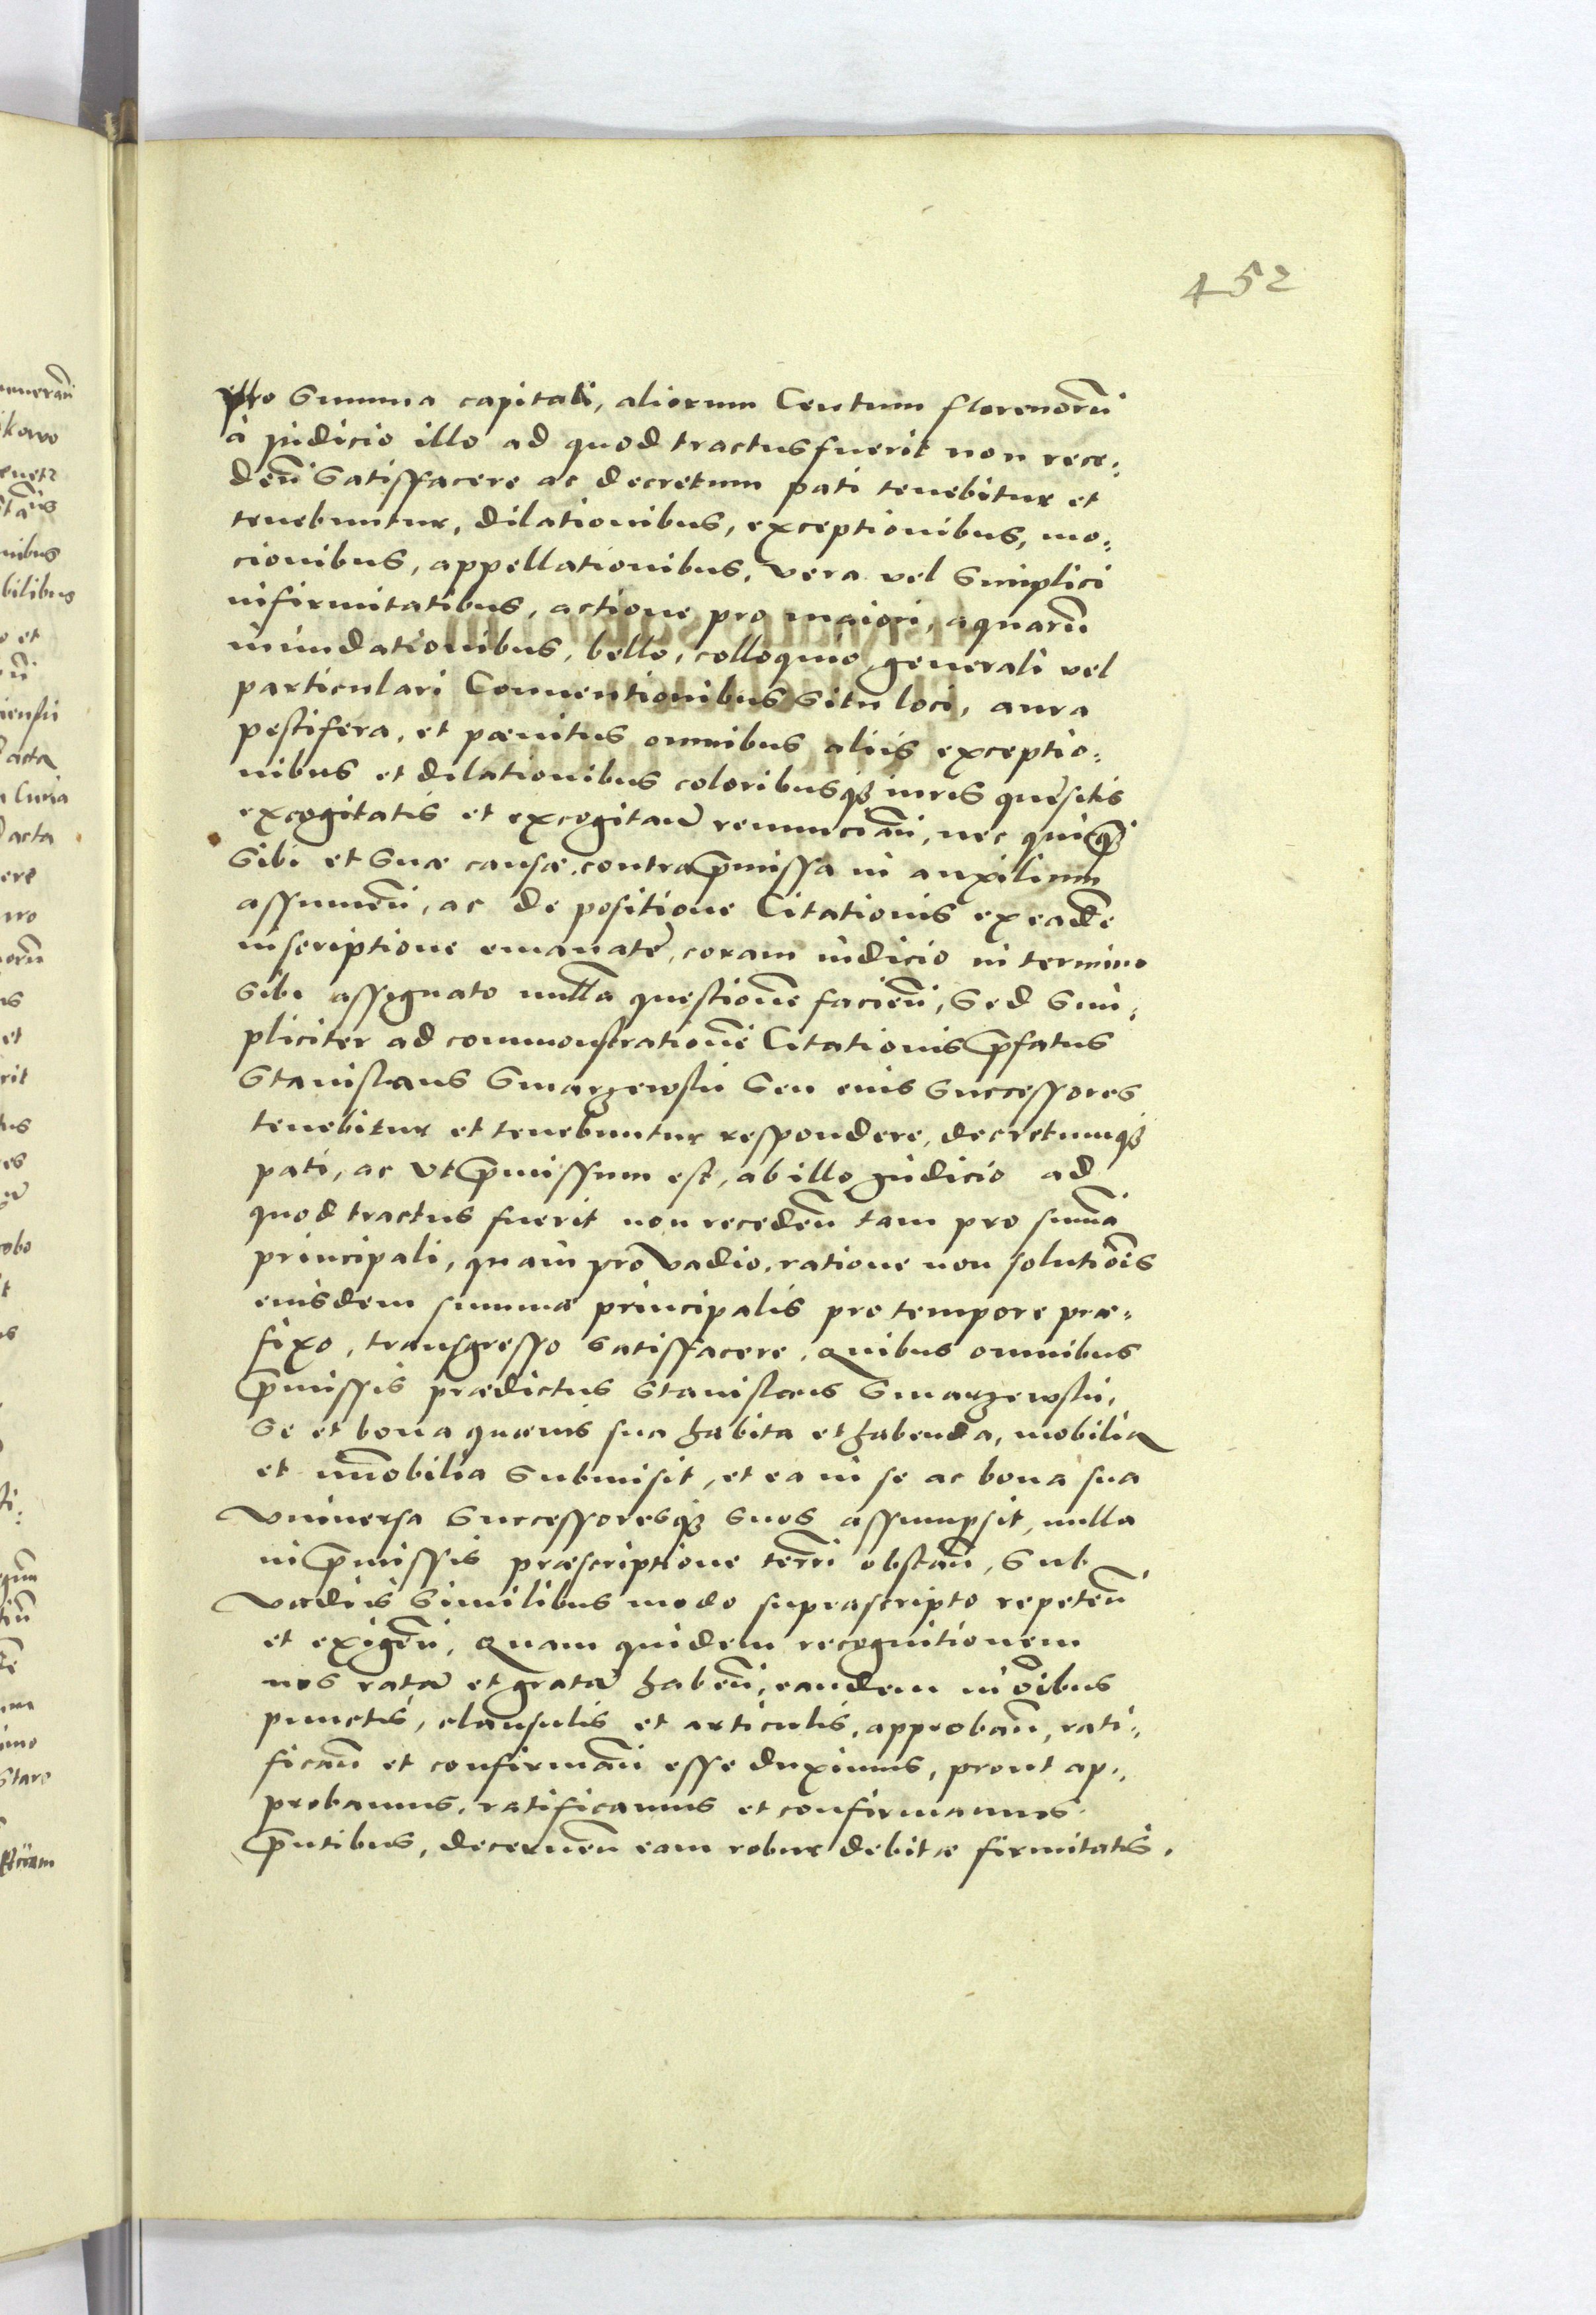 452
pro Summa capitali, aliorum Centum florenorũ
à judicio illo ad quod tractus fuerit non rece:
deñ Satisfacere ac decretum pati tenebitur et
tenebuntur, dilationibus, exceptionibus, mo:
cionibus, appellationibus, vera vel Simplici
infirmitatibus, actione pro maiori, aquarũ
inundationibus, bello, colloquio generali vel
particulari Conuentionibus Situ loci, aura
pestifera, et pænitus omnibus aliis exceptio:
nibus et dilationibus coloribusq₃ iuris quesitis
excogitatis et excogitañ renunciañ, nec quicq̃
Sibi et Suæ causæ contra p̃missa in auxilium
assumeñ, ac de positione Citationis ex eadẽ
inscriptione emanatẽ, coram iudicio in termino
Sibi assignato nullã questionẽ facieñ, Sed Sim:
pliciter ad commonstrationẽ Citationis p̃fatus
Stanislaus Smarzewski Seu eius Successores
tenebitur et tenebuntur respondere, decretumq₃
pati, ac vt p̃missum est, ab illo judicio ad
quod tractus fuerit non recedeñ tam pro summa
principali, quam pro vadio, ratione non solutiõis
eiusdem summæ principalis pro tempore præ:
fixo, transgresso Satisfacere, Quibus omnibus
p̃missis prædictus Stanislaus Smarzewski,
Se et bona quæuis sua habita et habenda, mobilia
et im̃obilia Submisit, et ea in se ac bona sua
vniuersa Successoresq₃ Suos assumpsit, nulla
in p̃missis præscriptione terrĩ obstañ, Sub
vadiis Similibus modo suprascripto repeteñ
et exigeñ, Quam quidem recognitionem
nos ratã et gratã habeñ, eandem in õibus
punctis, clausulis et articulis, approbañ, rati:
ficañ et confirmañ esse duximus, prout ap:
probamus, ratificamus et confirmamus
p̃ntibus, decerneñ eam robur debitæ firmitatis.